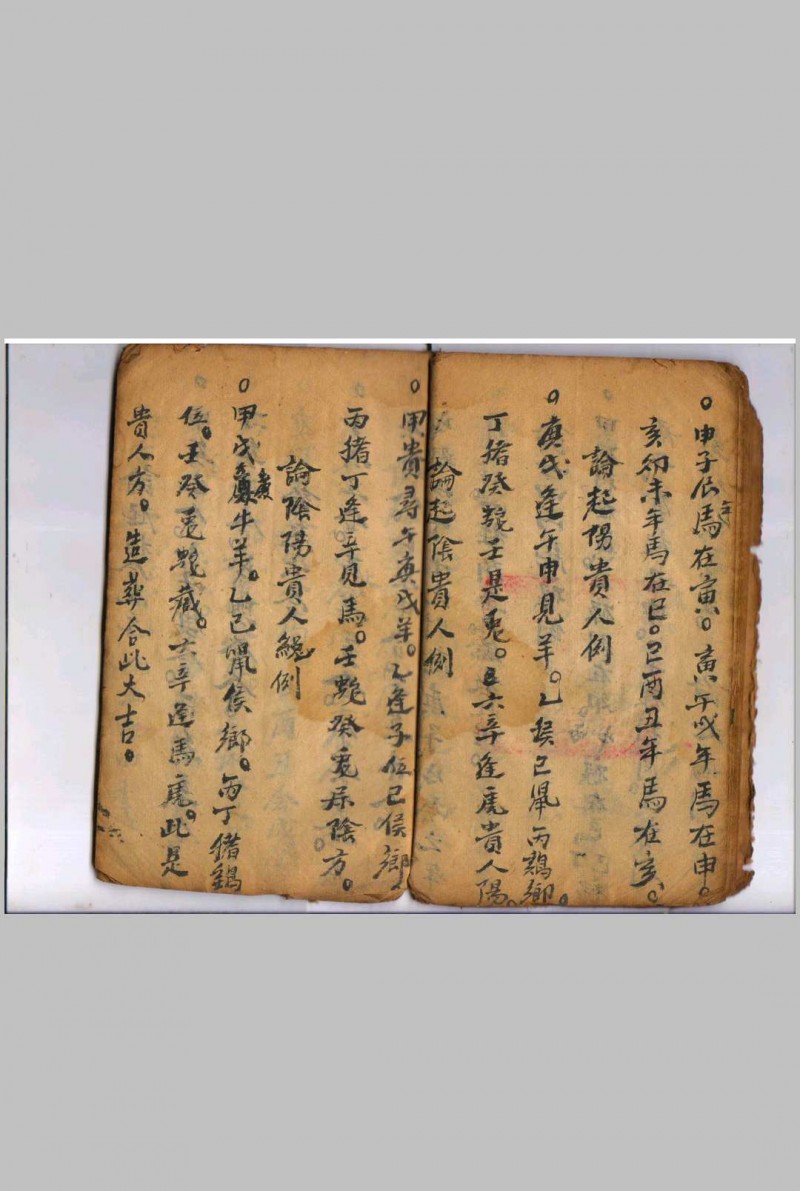 申子辰年馬在寅。寅午戌年馬在申。
亥卯未年馬在巳。巳酉丑年馬在亥。
論起陽貴人例
庚戊逢牛申見羊。乙猴己鼠丙鷄鄉。
丁猪癸蛇壬是兎。六辛逢虎貴人陽。
論起陰貴人例
甲貴尋牛庚戊羊。乙逢子位己侯鄉。
丙猪丁逢辛見馬。壬蛇癸兎屬陰方。
論陰陽貴人總例
甲戊兼牛羊。乙己鼠侯鄉。丙丁猪鷄
位。壬癸兎蛇藏。六辛逢馬虎。此是
貴人方。造葬合此大吉。